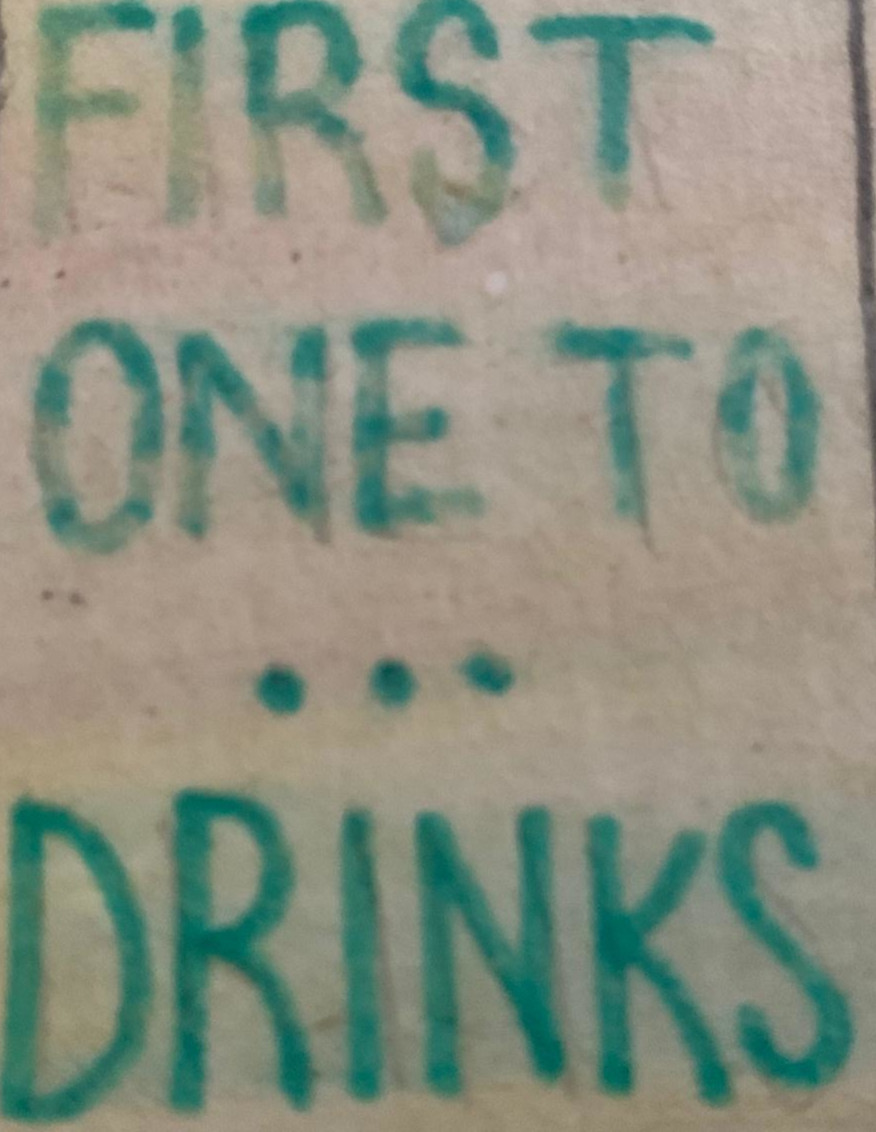 FIRST
ONE TO
...
DRINKS